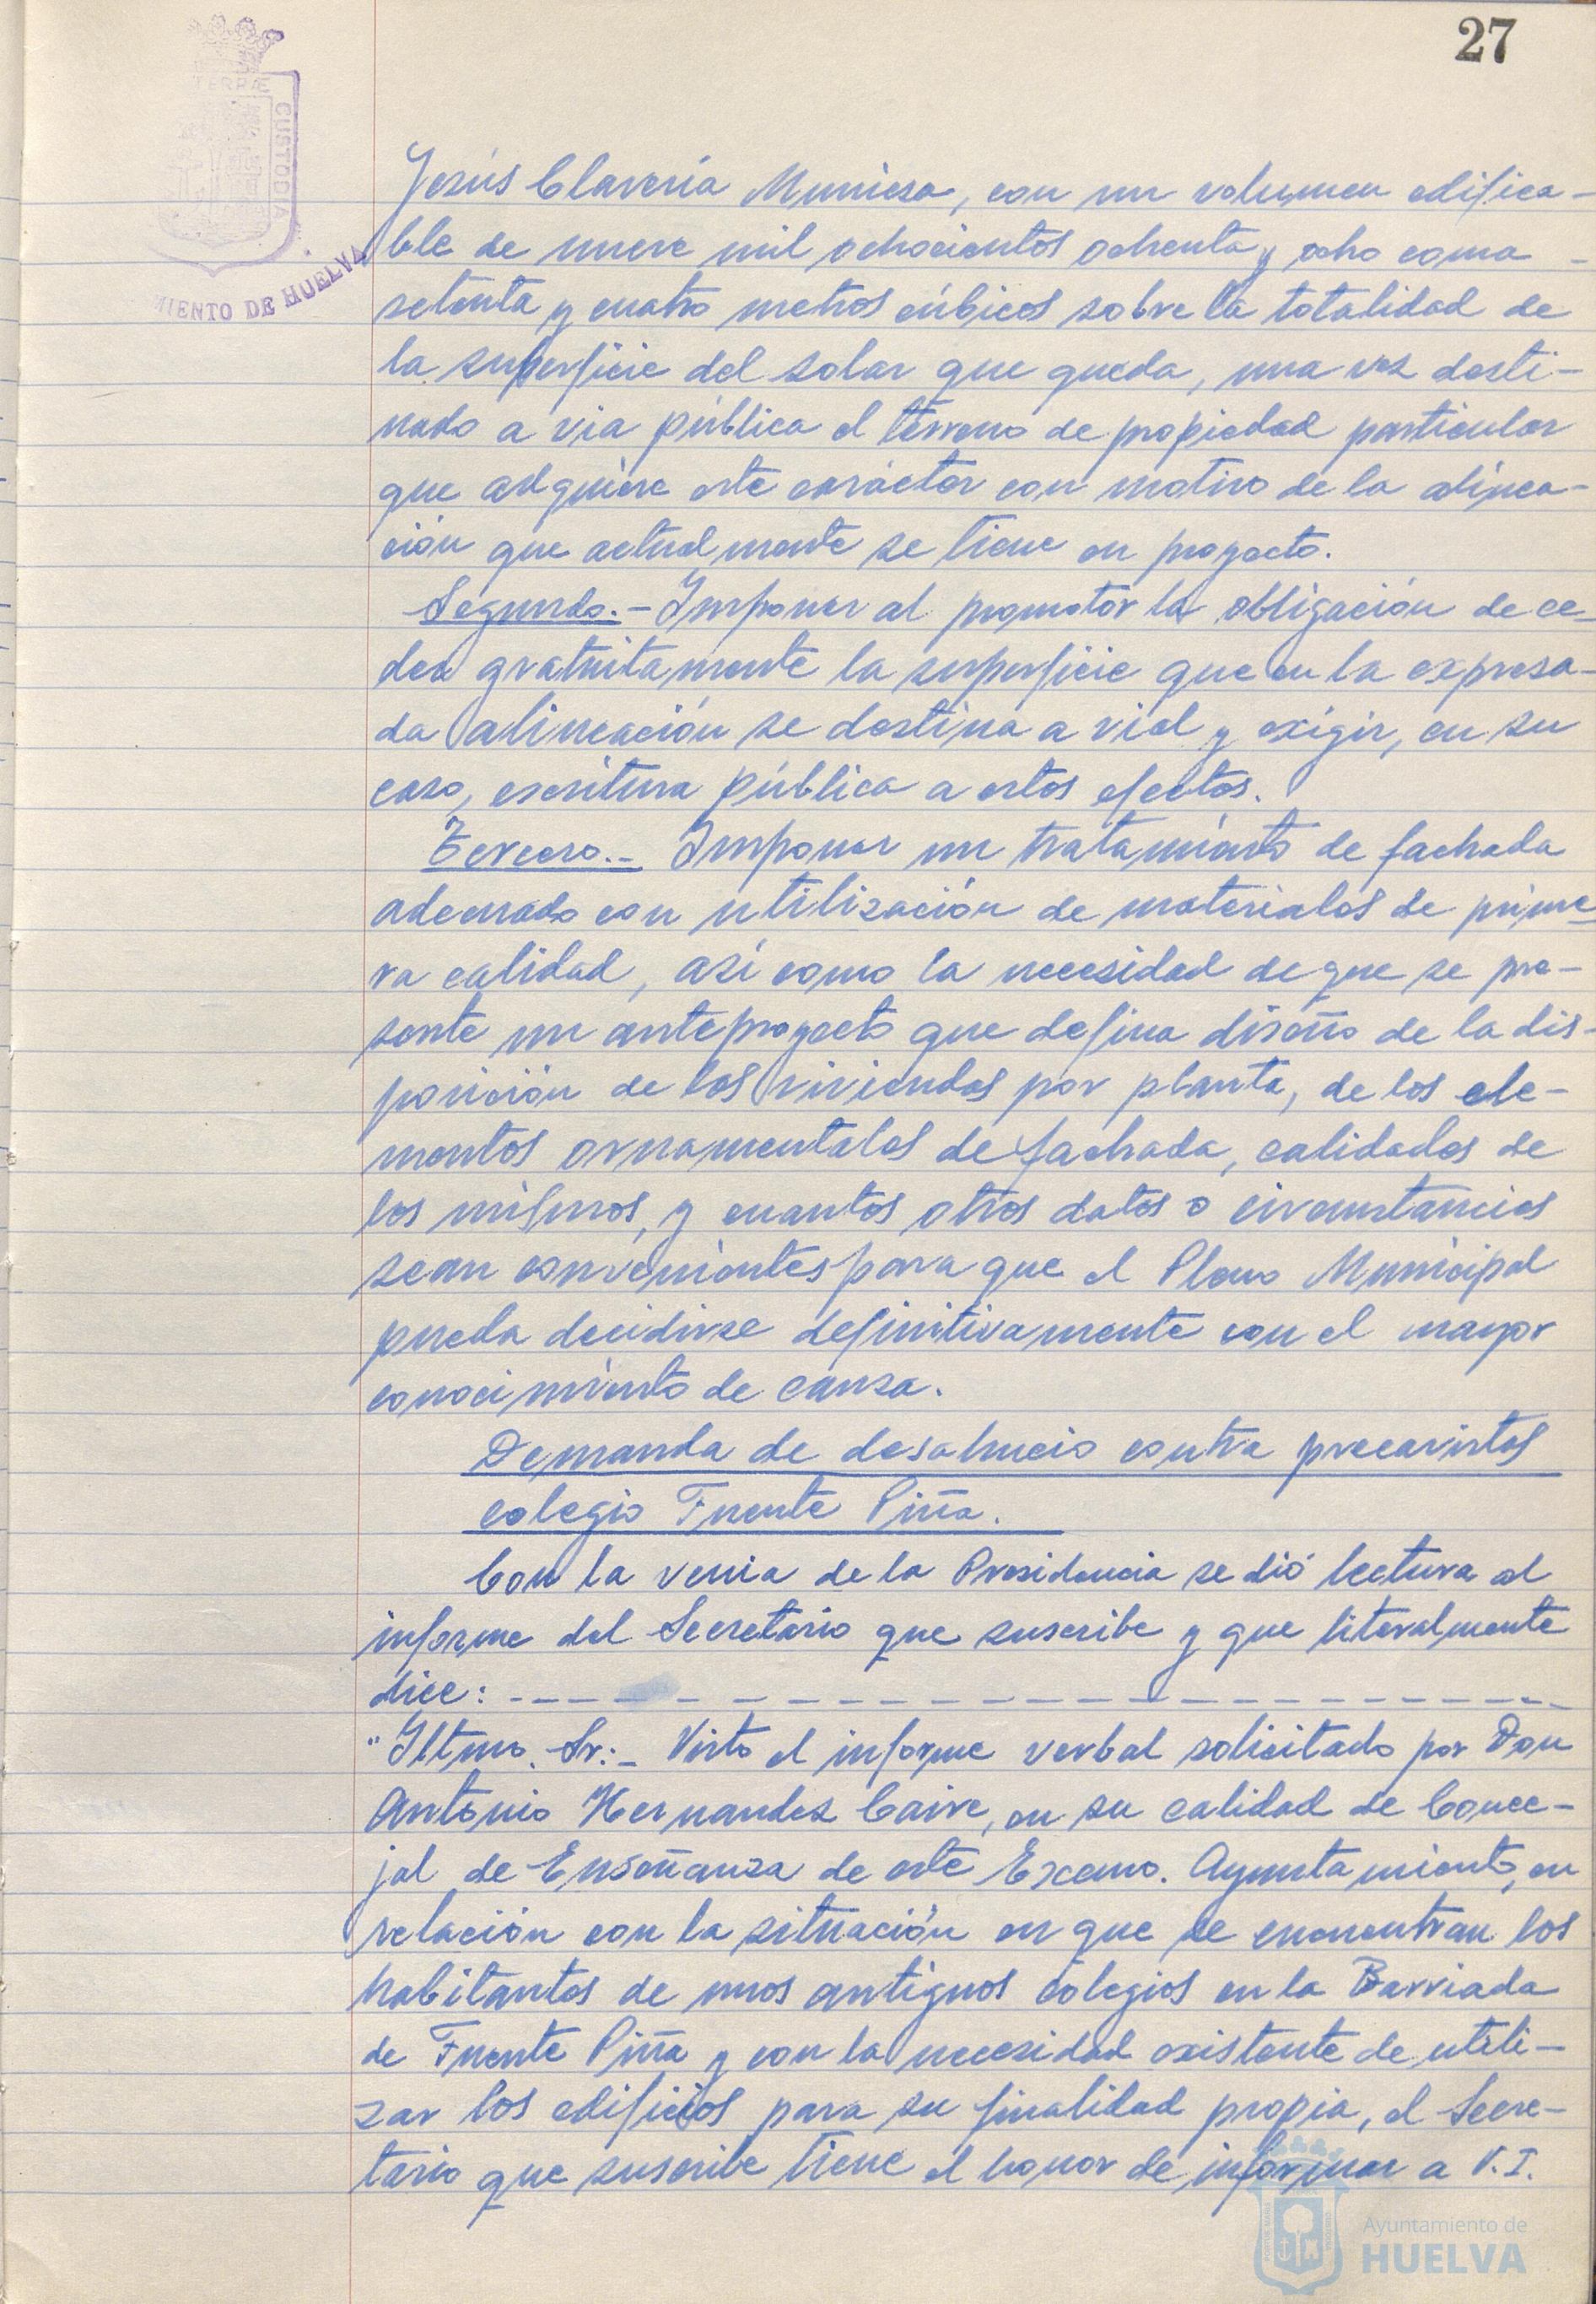 27
TERRÆ
CUSTODIA
MIENTO DE HUELVA
Jesús Clavería Muniesa, con un volumen edifica-
ble de nueve mil ochocientos ochenta y ocho coma -
setenta y cuatro metros cúbicos sobre la totalidad de
la superficie del solar que queda, una vez desti-
nado a via pública el terreno de propiedad particular
que adquiere este carácter con motivo de la alinea-
ción que actualmente se tiene en proyecto.
Segundo.- Imponer al promotor la obligación de ce-
der gratuitamente la superficie que en la expresa-
da alineación se destina a vial y exigir, en su
caso, escritura pública a estos efectos.
Tercero.- Imponer un tratamiento de fachada
adecuado con utilización de materiales de prime-
ra calidad, así como la necesidad de que se pre-
sente un anteproyecto que defina diseño de la dis-
posición de las viviendas por planta, de los ele-
mentos ornamentales de fachada, calidades de
los mismos, y cuantos otros datos o circunstancias
sean convenientes para que el Pleno Municipal
pueda decidirse definitivamente con el mayor
conocimiento de causa.
Demanda de desahucio contra precaristas
colegio Fuente Piña.
Con la venia de la Presidencia se dió lectura al
informe del Secretario que suscribe y que literalmente
dice: - - - - - - - - - - - - - - - - - - - -
"Iltmo. Sr.:- Visto el informe verbal solicitado por Don
Antonio Hernandez Caire, en su calidad de Conce-
jal de Enseñanza de este Excmo. Ayuntamiento, en
relación con la situación en que se encuentran los
habitantes de unos antiguos colegios en la Barriada
de Fuente Piña y con la necesidad existente de utili-
zar los edificios para su finalidad propia, el Secre-
tario que suscribe tiene el honor de informar a V.I.
Ayuntamiento de
HUELVA